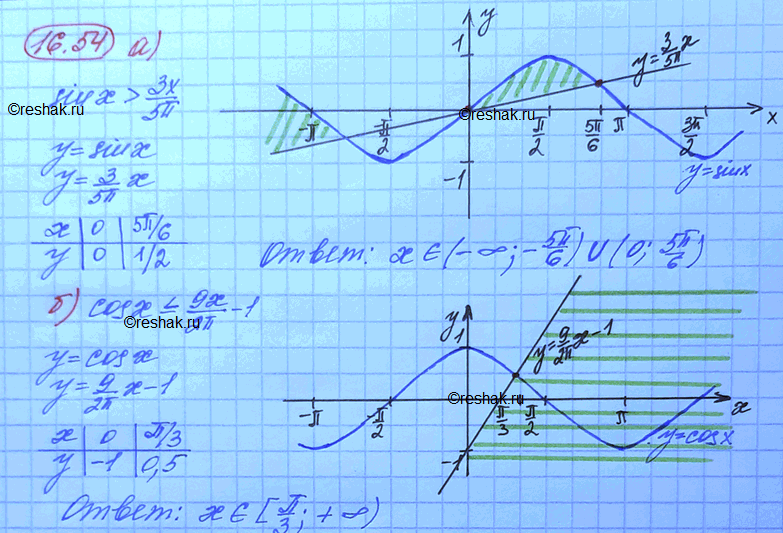 16.54 а)
sin x > 3x/5π
©reshak.ru
y = sin x
y = 3/5π x
x | 0 | 5π/6
y | 0 | 1/2
y
1
y = 3/5π x
©reshak.ru
©reshak.ru
-π -π/2 π/2 5π/6 π 3π/2 x
-1
y = sin x
Ответ: x ∈ (-∞; -5π/6) ∪ (0; 5π/6)
б) cos x ≤ 9x/2π - 1
©reshak.ru
y = cos x
y = 9/2π x - 1
x | 0 | π/3
y | -1 | 0,5
y
1
y = 9/2π x - 1
©reshak.ru
-π -π/2 π/3 π/2 π x
-1
y = cos x
Ответ: x ∈ [π/3; +∞)